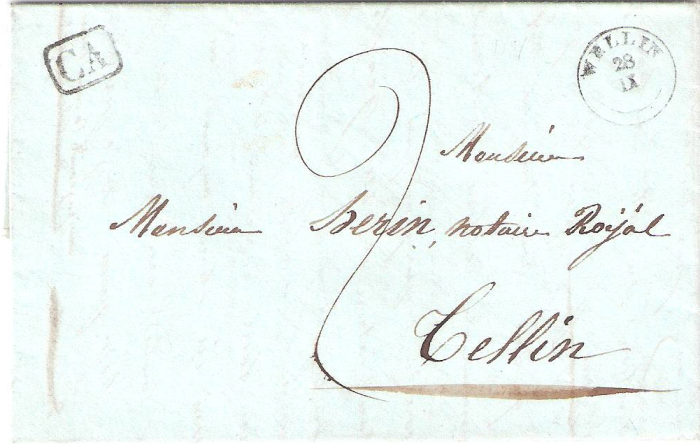 CA
WELLIN
28
IX
2
Monsieur
Monsieur Herin, notaire Royal
Tellin